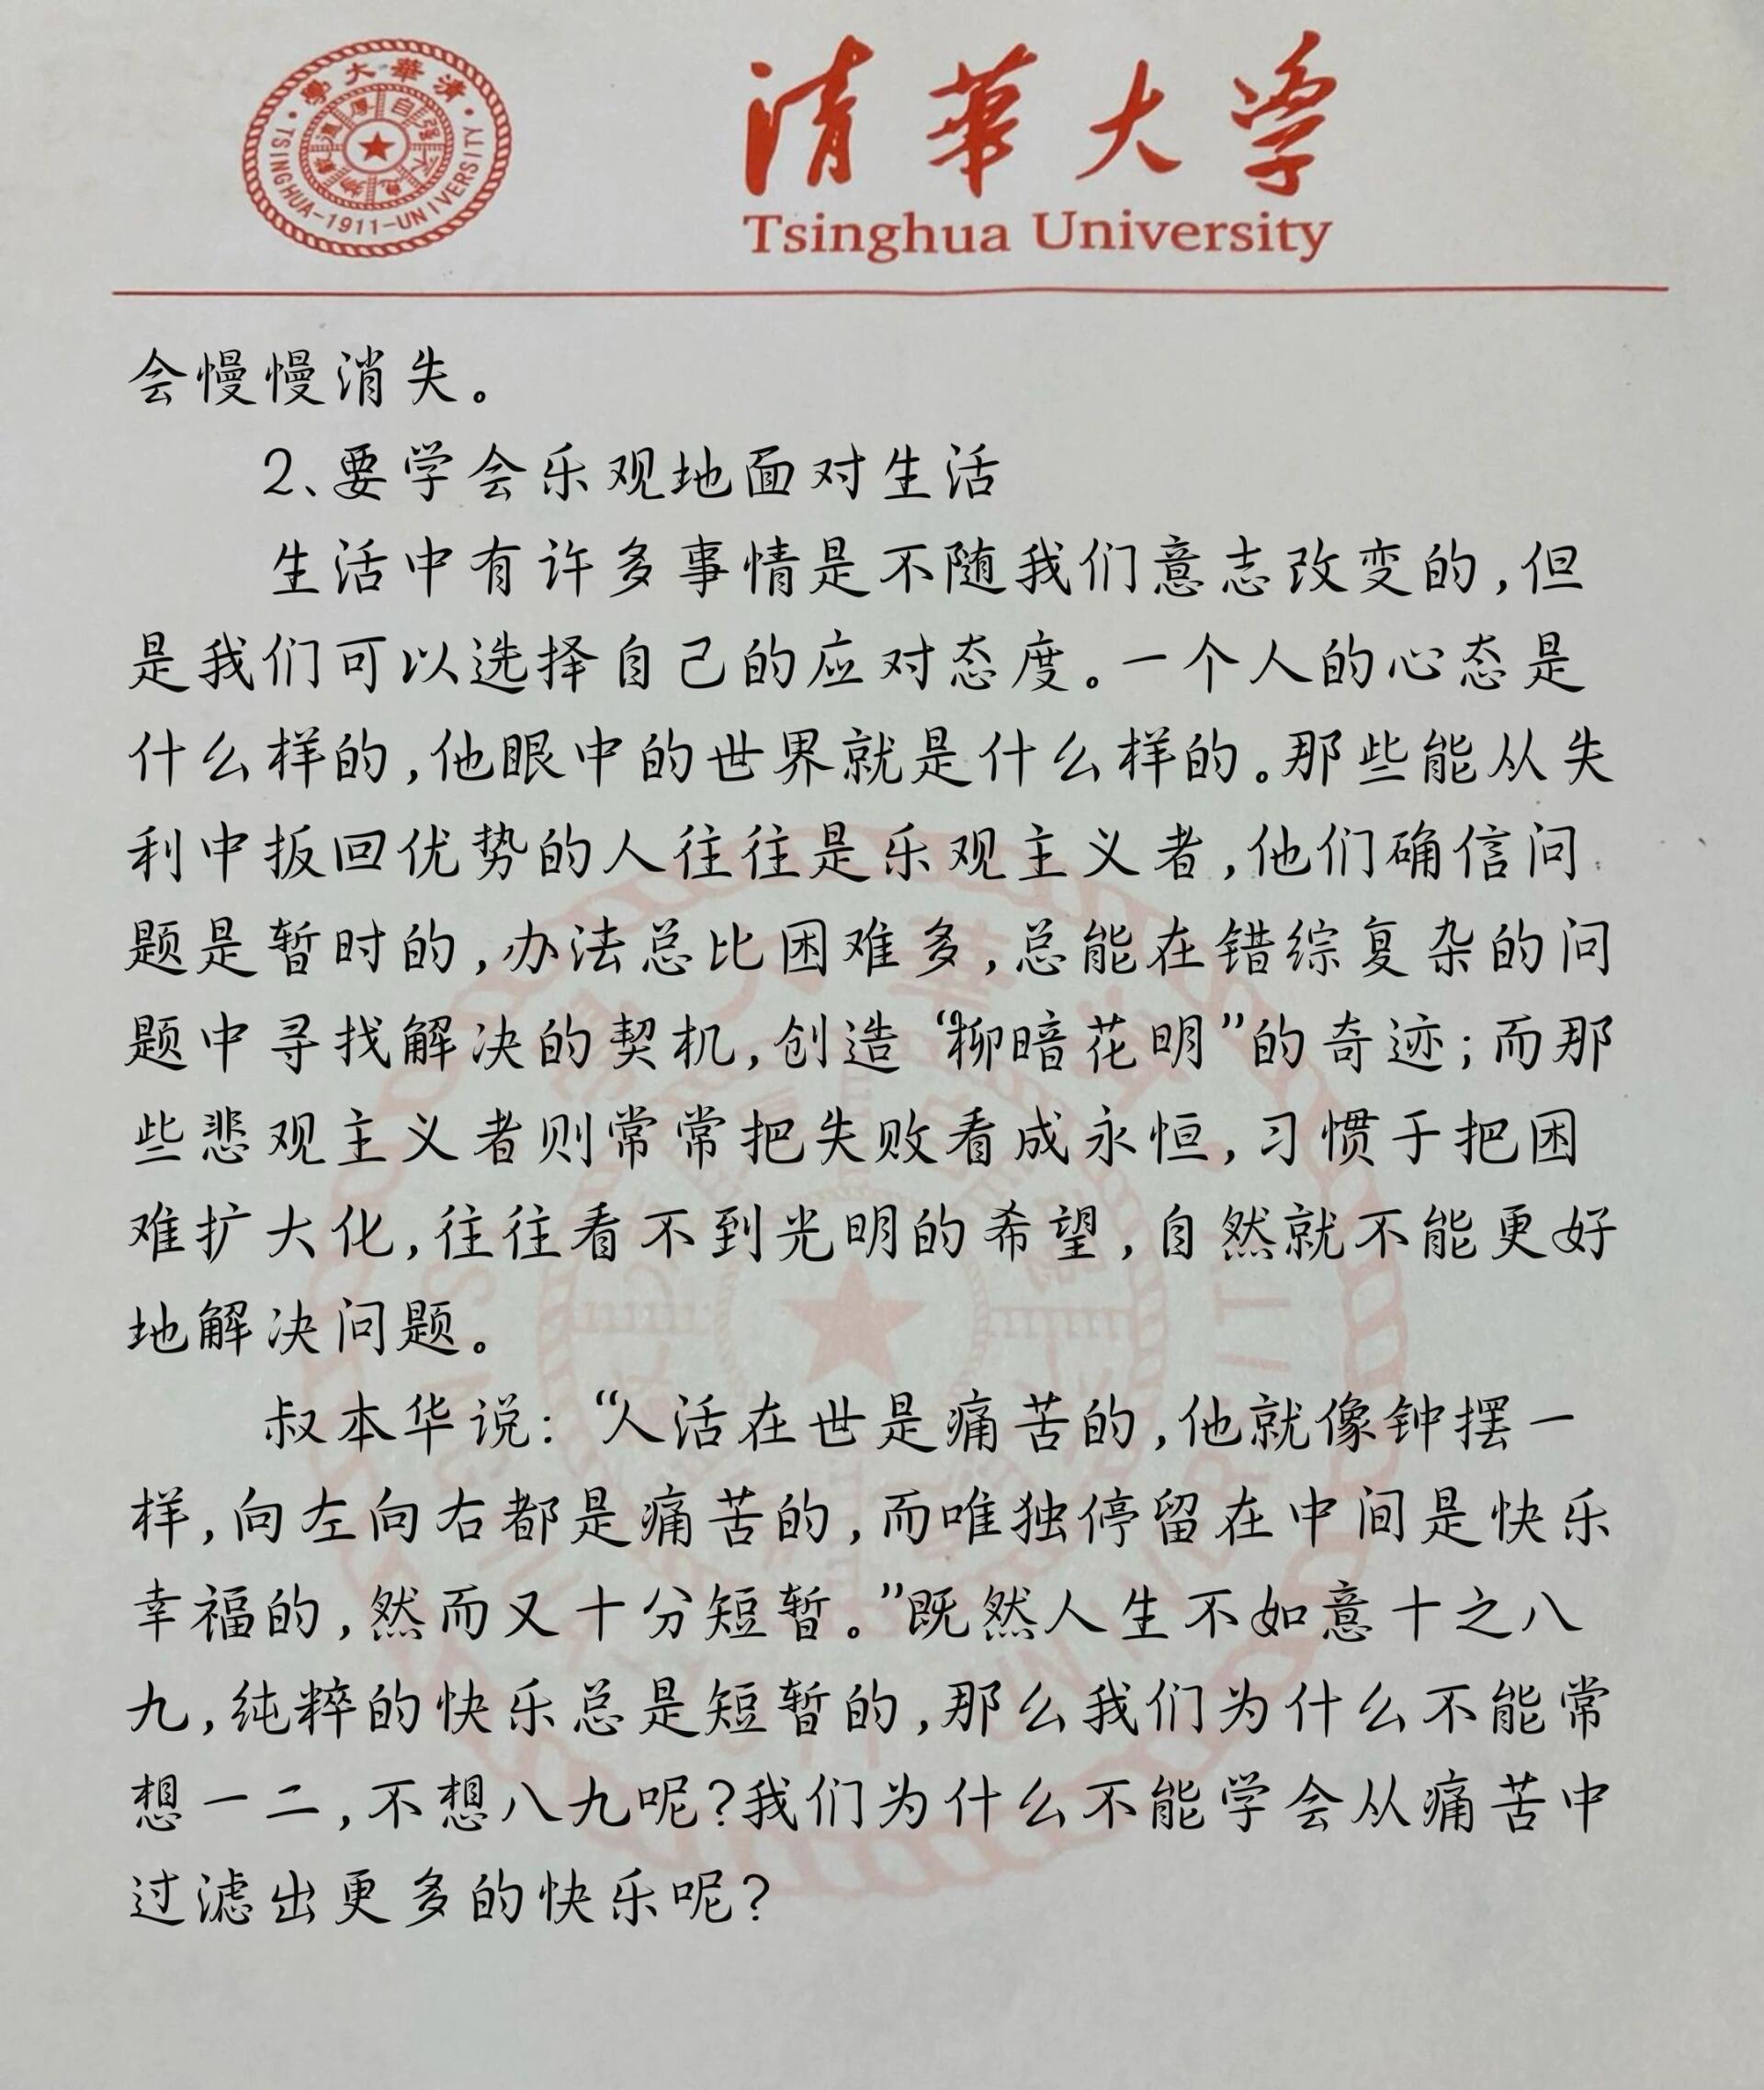 清華大學
TSINGHUA-1911-UNIVERSITY
自强不息
厚德載物
清華大学
Tsinghua University
会慢慢消失。
2、要学会乐观地面对生活
生活中有许多事情是不随我们意志改变的,但
是我们可以选择自己的应对态度。一个人的心态是
什么样的,他眼中的世界就是什么样的。那些能从失
利中扳回优势的人往往是乐观主义者,他们确信问
题是暂时的,办法总比困难多,总能在错综复杂的问
题中寻找解决的契机,创造“柳暗花明”的奇迹;而那
些悲观主义者则常常把失败看成永恒,习惯于把困
难扩大化,往往看不到光明的希望,自然就不能更好
地解决问题。
叔本华说:“人活在世是痛苦的,他就像钟摆一
样,向左向右都是痛苦的,而唯独停留在中间是快乐
幸福的,然而又十分短暂。”既然人生不如意十之八
九,纯粹的快乐总是短暂的,那么我们为什么不能常
想一二,不想八九呢?我们为什么不能学会从痛苦中
过滤出更多的快乐呢?